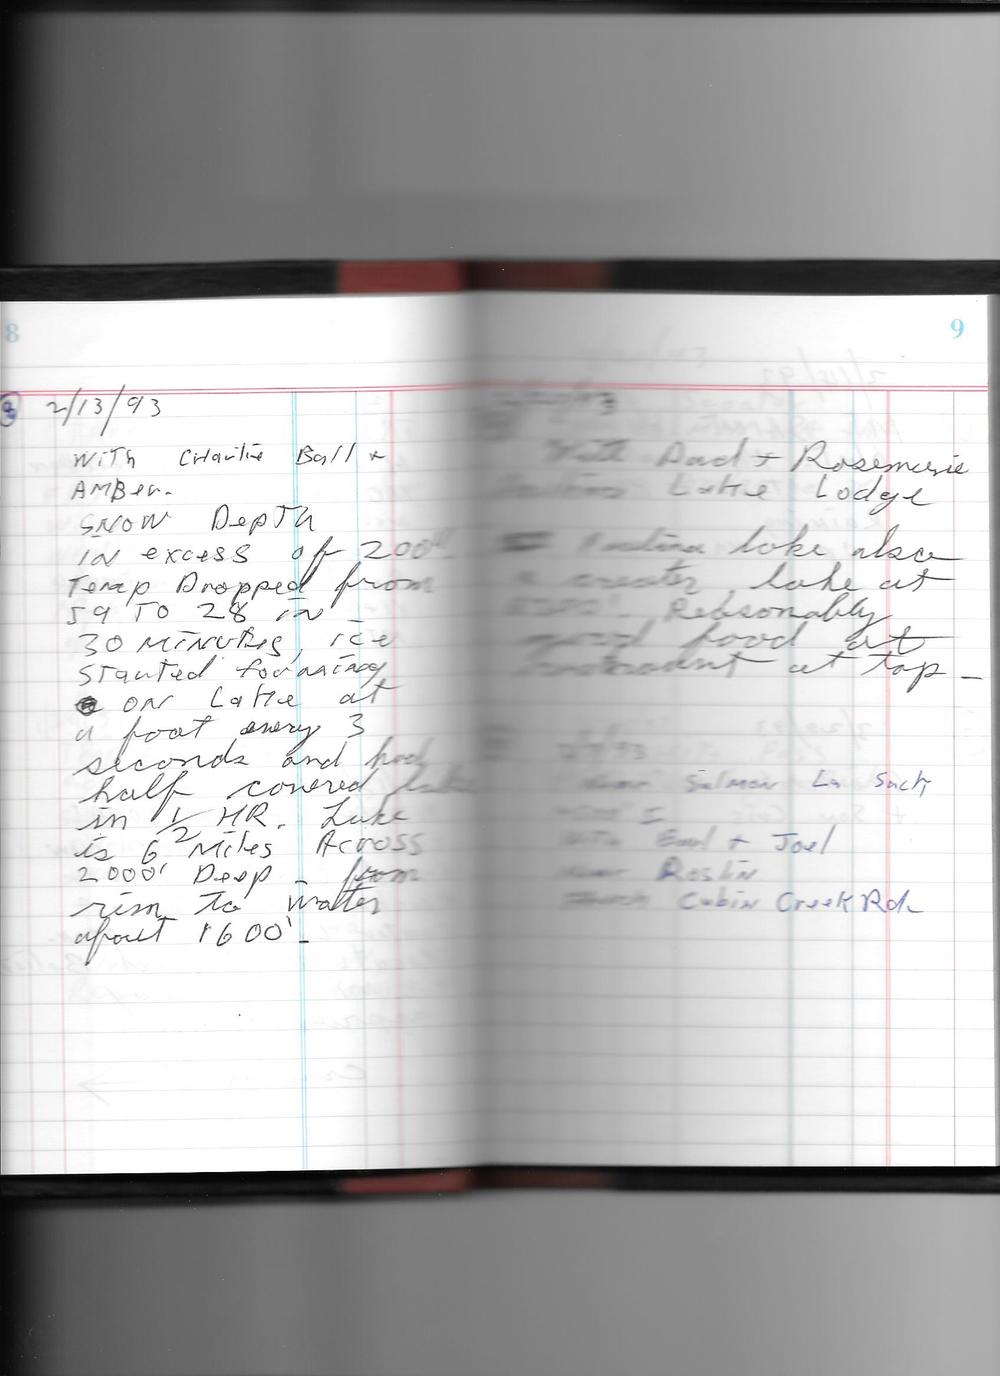 8
8 2/13/93
With Charlie Ball +
Amber.
Snow Depth
in excess of 200"
Temp Dropped from
59 to 28 in
30 minutes, ice
started forming
on Lake at
a foot every 3
seconds and had
half covered lake
in 1/2 HR. Lake
is 6 Miles Across
2000' Deep - from
rim to watter
apout 1600'-
9
With Dad + Rosemarie
Lake Lodge
lake also
a creater lake at
Reasonably
food at
at top -
2/7/93
near Salmon La Sac
with Earl + Joel
near Roslin
Cabin Creek Rd.